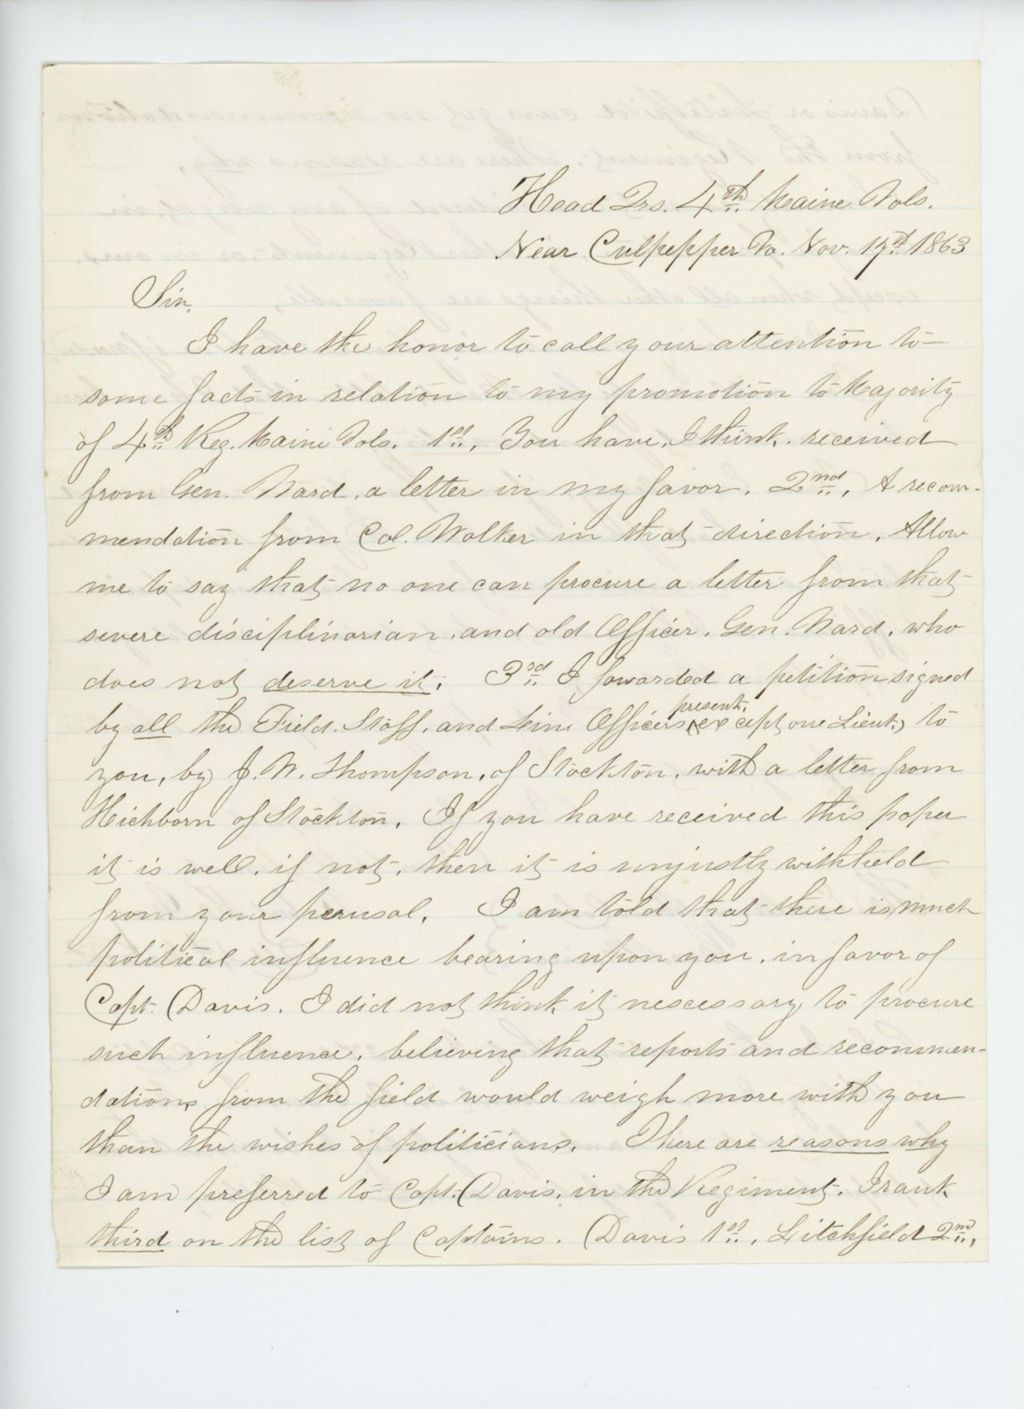 Head Qrs. 4th Maine Vols.
Near Culpepper Va. Nov. 17th 1863
Sir,
I have the honor to call your attention to
some facts in relation to my promotion to Majority
of 4th Reg. Maine Vols. 1st, You have, I think, received
from Gen. Ward, a letter in my favor. 2nd, A recom-
mendation from Col. Walker in that direction. Allow
me to say that no one can procure a letter from that
severe disciplinarian, and old Officer, Gen. Ward, who
does not deserve it; 3rd I forwarded a petition signed
present,
by all the Field, Staff, and Line Officers (except one Lieut.) to
you, by J. W. Thompson, of Stockton, with a letter from
Hichborn of Stockton. If you have received this paper
it is well, if not, then it is unjustly withheld
from your perusal. I am told that there is much
political influence bearing upon you, in favor of
Capt. Davis. I did not think it nescessary to procure
such influence, believing that reports and recommen-
dations from the field would weigh more with you
than the wishes of politicians. There are reasons why
I am preferred to Capt. Davis, in the Regiment. I rank
third on the list of Captains. Davis 1st, Litchfield 2nd,